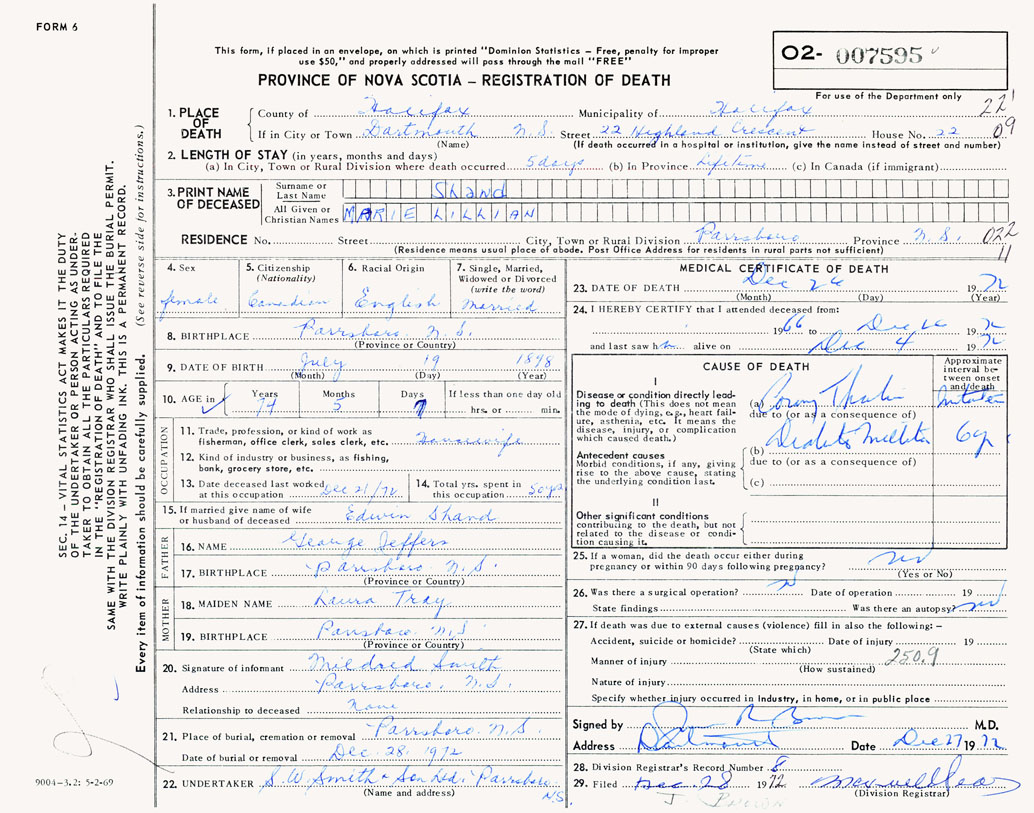 FORM 6
This form, if placed in an envelope, on which is printed "Dominion Statistics – Free, penalty for improper
use $50," and properly addressed will pass through the mail "FREE"
PROVINCE OF NOVA SCOTIA – REGISTRATION OF DEATH
O2- 007595
For use of the Department only
22
09
1. PLACE OF DEATH
County of Halifax Municipality of Halifax
If in City or Town Dartmouth N.S. Street 22 Highland Crescent House No. 22
(Name) (If death occurred in a hospital or institution, give the name instead of street and number)
2. LENGTH OF STAY (in years, months and days)
(a) In City, Town or Rural Division where death occurred 5 days (b) In Province Lifetime (c) In Canada (if immigrant)
3. PRINT NAME OF DECEASED
Surname or Last Name Shand
All Given or Christian Names MARIE LILLIAN
RESIDENCE No. Street City, Town or Rural Division Parrsboro Province N.S. 022
11
(Residence means usual place of abode. Post Office Address for residents in rural parts not sufficient)
4. Sex
female
5. Citizenship (Nationality)
Canadian
6. Racial Origin
English
7. Single, Married, Widowed or Divorced (write the word)
Married
8. BIRTHPLACE Parrsboro N.S.
(Province or Country)
9. DATE OF BIRTH July 19 1898
(Month) (Day) (Year)
10. AGE in Years 74 Months 5 Days 7 If less than one day old hrs. or min.
OCCUPATION
11. Trade, profession, or kind of work as
fisherman, office clerk, sales clerk, etc. Housewife
12. Kind of industry or business, as fishing,
bank, grocery store, etc.
13. Date deceased last worked at this occupation Dec 21/72
14. Total yrs. spent in this occupation 50 yrs
15. If married give name of wife
or husband of deceased Edwin Shand
FATHER
16. NAME George Jeffers
17. BIRTHPLACE Parrsboro N.S.
(Province or Country)
MOTHER
18. MAIDEN NAME Laura
19. BIRTHPLACE Parrsboro N.S.
(Province or Country)
20. Signature of informant Mildred Smith
Address Parrsboro, N.S.
Relationship to deceased None
21. Place of burial, cremation or removal Parrsboro N.S.
Date of burial or removal Dec. 28, 1972
22. UNDERTAKER S.W. Smith & Son Ltd. Parrsboro N.S.
(Name and address)
MEDICAL CERTIFICATE OF DEATH
23. DATE OF DEATH Dec 26 1972
(Month) (Day) (Year)
24. I HEREBY CERTIFY that I attended deceased from:
1966 to Dec 26 1972
and last saw h alive on Dec 4 1972
CAUSE OF DEATH
Approximate interval between onset and/death
I
Disease or condition directly leading to death (This does not mean the mode of dying, e.g., heart failure, asthenia, etc. It means the disease, injury, or complication which caused death.)
(a)
due to (or as a consequence of)
Antecedent causes
Morbid conditions, if any, giving rise to the above cause, stating the underlying condition last.
(b) 6 yr
due to (or as a consequence of)
(c)
II
Other significant conditions
contributing to the death, but not related to the disease or condition causing it.
25. If a woman, did the death occur either during
pregnancy or within 90 days following pregnancy? no
(Yes or No)
26. Was there a surgical operation? Date of operation 19
State findings Was there an autopsy? no
27. If death was due to external causes (violence) fill in also the following: –
Accident, suicide or homicide? Date of injury 19
(State which)
Manner of injury 250.9
(How sustained)
Nature of injury
Specify whether injury occurred in Industry, in home, or in public place
Signed by M.D.
Address Dartmouth Date Dec 27 1972
28. Division Registrar's Record Number 8
29. Filed Dec. 28 1972
(Division Registrar)
SEC. 14 – VITAL STATISTICS ACT MAKES IT THE DUTY
OF THE UNDERTAKER OR PERSON ACTING AS UNDER-
TAKER TO OBTAIN ALL THE PARTICULARS REQUIRED
IN THE "REGISTRATION OF DEATH" AND TO FILE THE
SAME WITH THE DIVISION REGISTRAR WHO SHALL ISSUE THE BURIAL PERMIT.
WRITE PLAINLY WITH UNFADING INK. THIS IS A PERMANENT RECORD.
Every item of information should be carefully supplied. (See reverse side for instructions.)
9004–3.2: 5-2-69